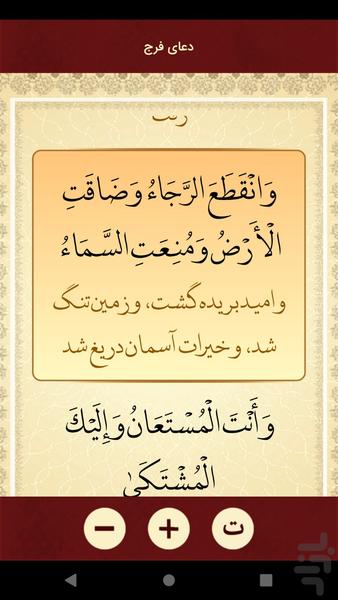 دعای فرج
وَانْقَطَعَ الرَّجَاءُ وَضَاقَتِ
الْأَرْضُ وَمُنِعَتِ السَّمَاءُ
وامید بریده گشت، و زمین تنگ
شد، و خیرات آسمان دریغ شد
وَأَنْتَ الْمُسْتَعَانُ وَإِلَيْكَ
الْمُشْتَكَىٰ
− + ت
بازار